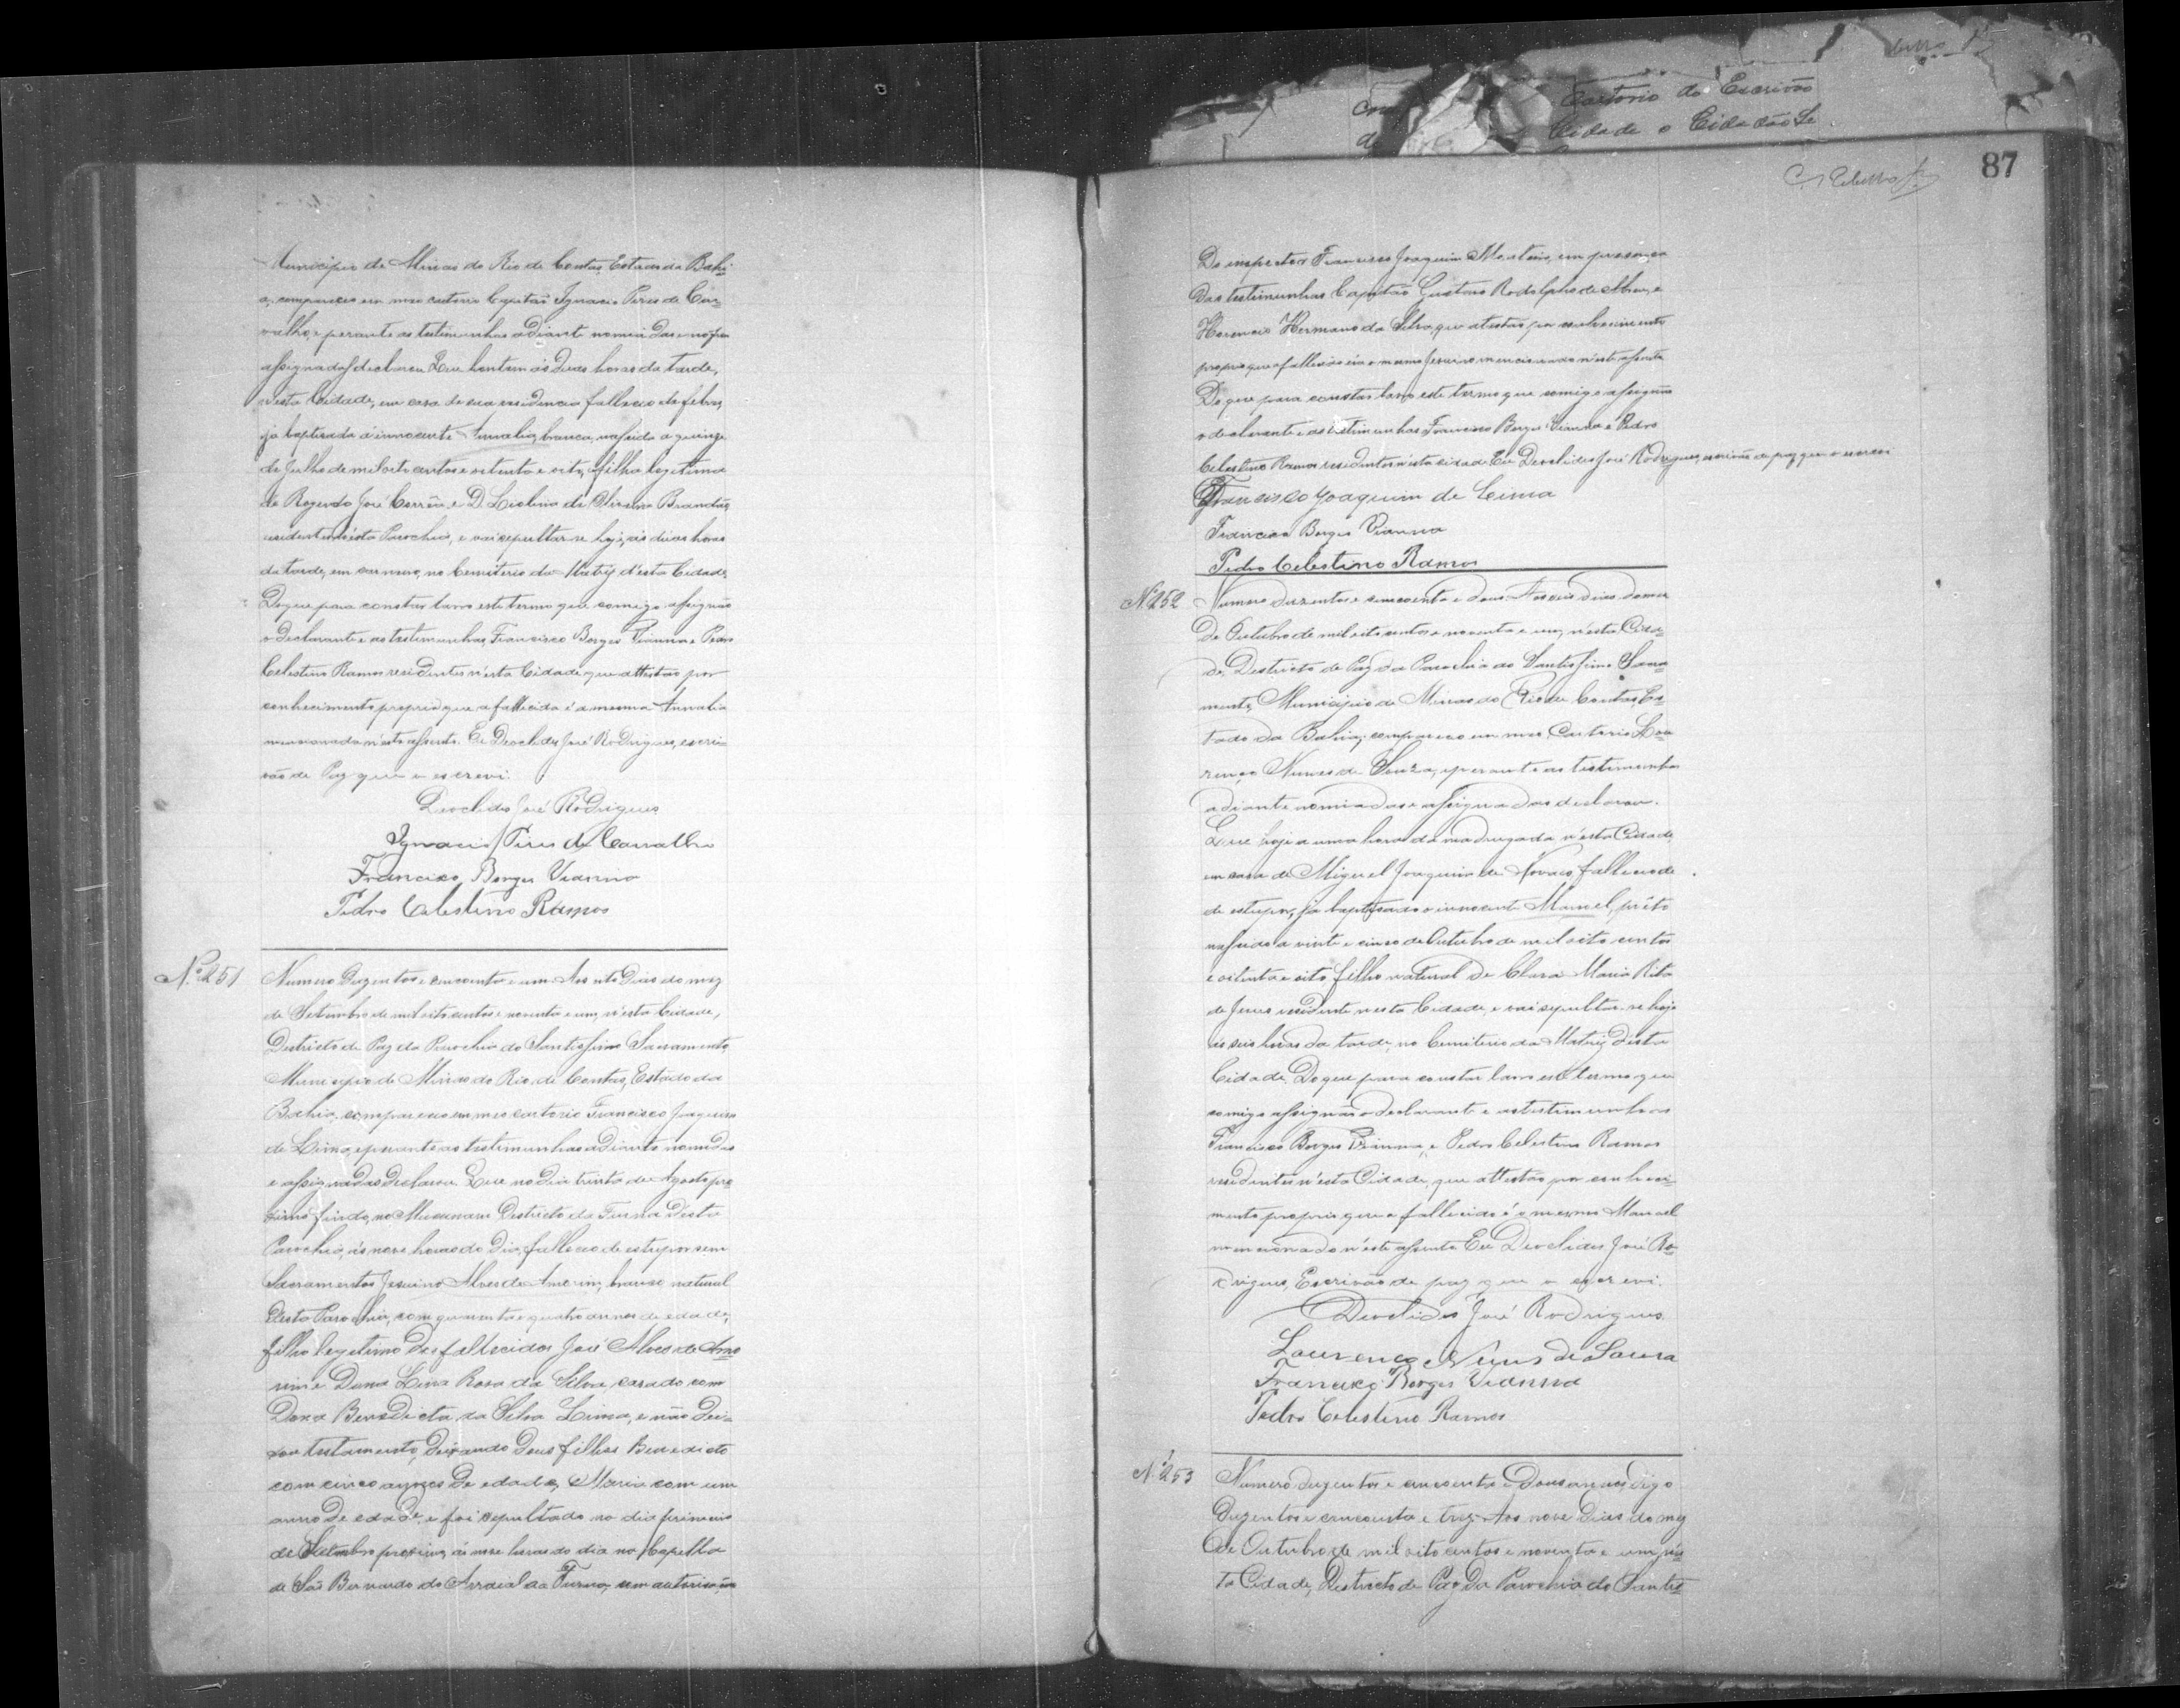 Municipio de Minas do Rio de Contas, Estado da Bahi-
a, compareceo em meo cartorio Capitão Ignacio Pires de Car-
valho, e perante as testimunhas adiante nomiadas e
assignadas declarou: Que hontem ás duas horas da tarde,
nesta Cidade, em casa de sua residencia falleceo de febre,
ja baptisada a innocente Annalia, branca, nascida a quinze
de Julho de mil oito centos e oitenta e oito, filha legitima
de Rogerdo José Corrêa e D. Leolina de Oliveira Brandão,
residentes n'esta Parochia, e vai sepultar-se hoje, ás duas horas
da tarde, em carneiro, no Cemiterio da Matriz d'esta Cidade.
Do que para constar lavro este termo que comigo assignão
o declarante e as testimunhas, Francisco Borges Vianna e Pedro
Celestino Ramos residentes n'esta Cidade, que attestão por
conhecimento proprio que a fallecida é a mesma Annalia
mencionada n'este assento. Eu Deoclides José Rodrigues, escri-
vão de Paz que o escrevi.
Deoclides José Rodrigues
Ignacio Pires de Carvalho
Francisco Borges Vianna
Pedro Celestino Ramos
N.º 251
Numero Duzentos e cincoenta e um. Aos oito Dias do mez
de Setembro de mil oito centos e noventa e um, n'esta Cidade,
Districto de Paz da Parochia do Santissimo Sacramento
Municipio de Minas do Rio de Contas, Estado da
Bahia, compareceo em meo cartorio Francisco Joaquim
de Lima, e perante as testimunhas adiante nomiadas
e assignadas declarou: Que no dia trinta de Agosto pro
ximo findo, no Districto da Furna d'esta
Parochia, ás nove horas do Dia, falleceo de estupor sem
Sacramentos Jesuino Alves de Amorim, branco natural
desta Parochia, com quarenta e quatro annos de edade,
filho legitimo dos fallecidos José Alves de Amo
rim e Dona Lina Rosa da Silva, casado com
Dona Benedicta da Silva Lima, e não dei-
xou testamento, deixando Dous filhos Benedicto
com cinco annos de edade, Maria com um
anno de edade, e foi sepultado no dia primeiro
de Setembro proximo, ás nove horas do dia na Capella
de São Bernardo do Arraial da Furna, com autorisação
Cartorio do Escrivão
Cidade o Cidadão
87
Do inspector Francisco Joaquim Monteiro, em presença
Das testimunhas Capitão Gustavo Rodolpho de Abreu, e
Herencio Hermano da Silva, que atestão por conhecimento
proprio que o fallecido era o mesmo Jesuino mencionado n'este assento
Do que para constar lavro este termo que comigo assignão
o declarante e as testimunhas Francisco Borges Vianna e Pedro
Celestino Ramos residentes n'esta cidade. Eu Deoclides José Rodrigues, escrivão de paz que o escrevi
Francisco Joaquim de Lima
Francisco Borges Vianna
Pedro Celestino Ramos
N.º 252
Numero duzentos e cincoenta e dous. Aos seis dias do mez
De Outubro de mil oito centos e noventa e um, n'esta Cida-
de, Districto de Paz da Parochia do Santissimo Sacra-
mento, Municipio de Minas do Rio de Contas, Es-
tado da Bahia, compareceo em meo Cartorio Lou-
renço Nunes de Souza, e perante as testimunhas
adiante nomiadas e assignadas declarou.
Que hoje a uma hora da madrugada n'esta Cidade,
em casa de Miguel Joaquim de Novaes falleceo de
de estupor, ja baptisado o innocente Manoel, prêto
nascido a vinte e cinco de Outubro de mil oito centos
e oitenta e oito filho natural de Clara Maria Rita
de Jesus residente nesta Cidade, e vai sepultar-se hoje
ás seis horas da tarde, no Cemiterio da Matriz desta
Cidade. Do que para constar lavro este termo que
comigo assignão o declarante e as testimunhas
Francisco Borges Vianna, e Pedro Celestino Ramos
residentes n'esta Cidade, que attestão por conheci-
mento proprio que o fallecido é o mesmo Manoel
mencionado n'este assento. Eu Deoclides José Ro-
drigues, Escrivão de paz que o escrevi.
Deoclides José Rodrigues
Lourenço Nunes de Souza
Francisco Borges Vianna
Pedro Celestino Ramos
N.º 253
Numero duzentos e cincoenta e Dous digo
Duzentos e cincoenta e trez. Aos nove Dias do mez
De Outubro de mil oito centos e noventa e um, n'es-
ta Cidade, Districto de Paz Da Parochia do Santis-